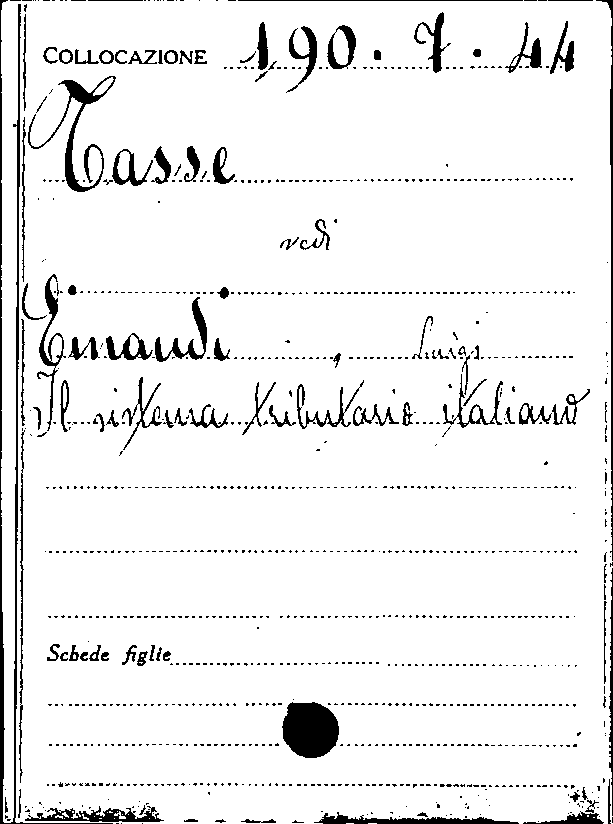 COLLOCAZIONE 190.7.44
Tasse
vedi
Einaudi, Luigi
Il sistema tributario italiano
Schede figlie